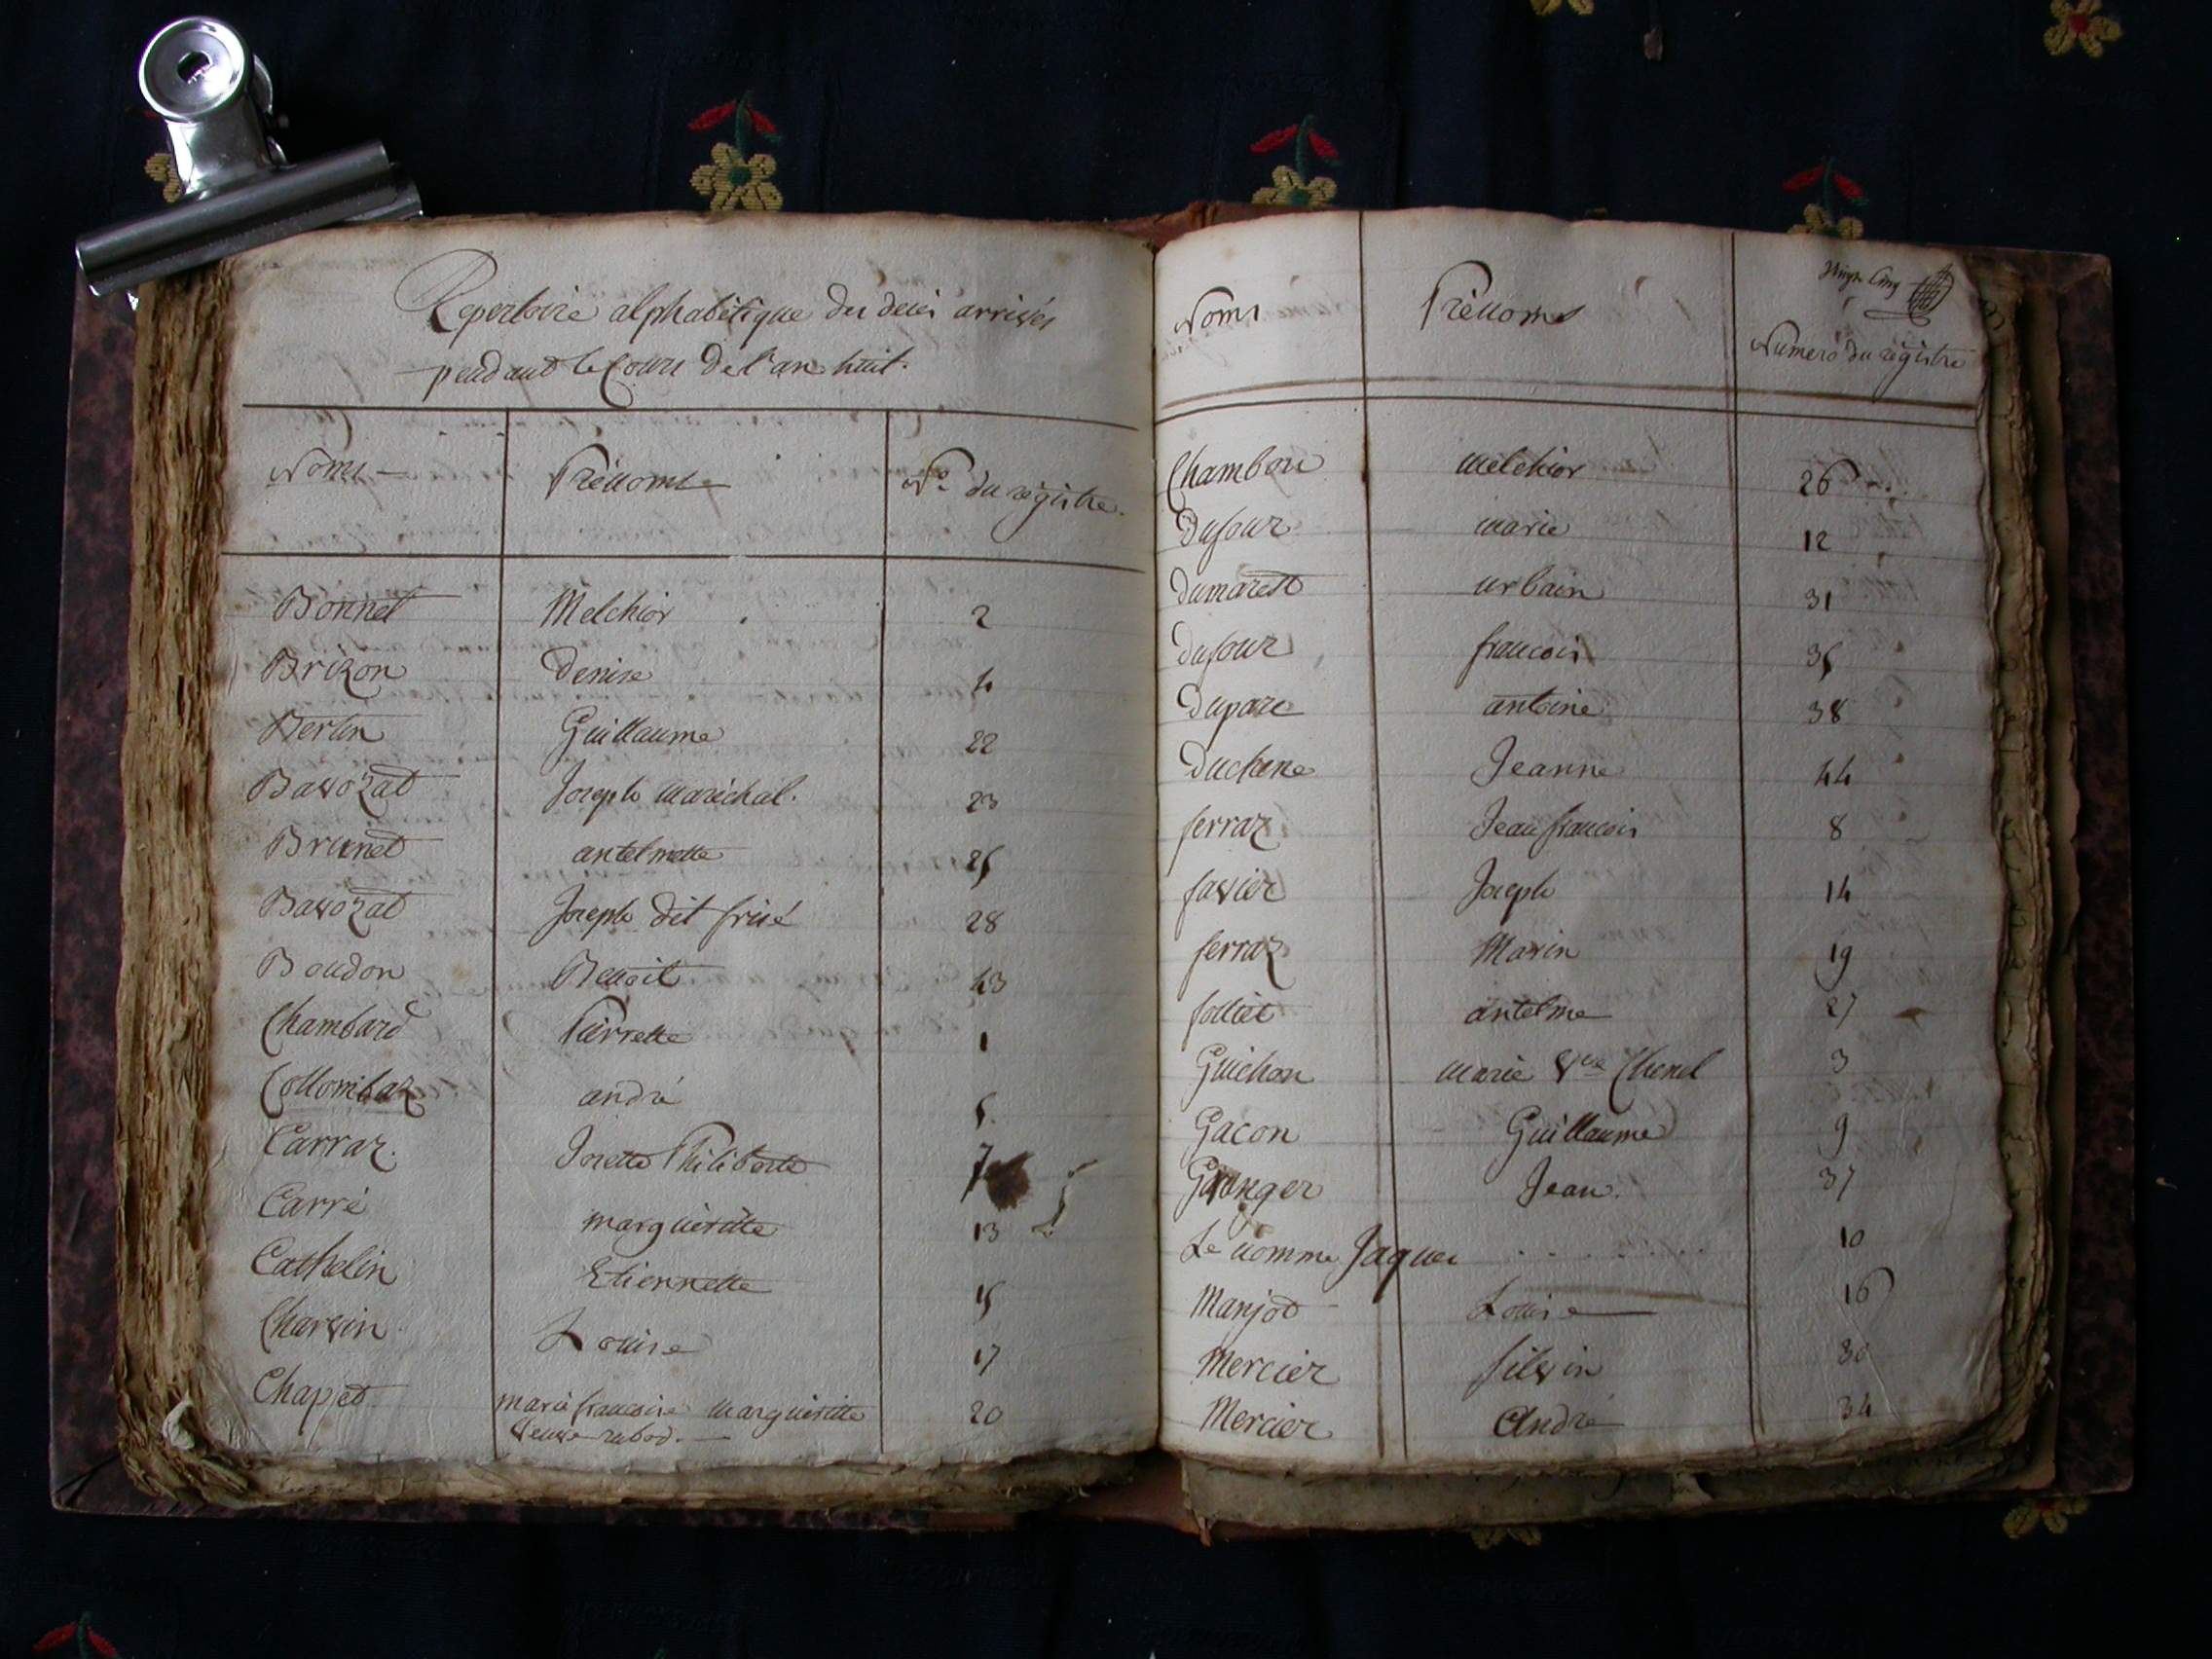 Repertoire alphabétique des decés arrivés
pendant le Cours de l'an huit.
Noms Prénoms No. du régistre.
Bonnet Melchior 2
Brizon denise 4
Bertin Guillaume 22
Bavozat Joseph maréchal. 23
Brunet antelmette 25
Bavozat Joseph dit frisé 28
Boudon Benoit 43
Chambard Pierrette 1
Collombaz andré 5.
Carraz. Josette Philiberte 7
Carré margueritte 13
Cathelin Etiennette 15
Charvin Louise 17
Chapet marie francoise margueritte 20
Veuve rubod.
Vingt Cinq
Noms Prénoms Numero du régistre
Chambon melchior 26
dufour marie 12
dumarest urbain 31
dufour francois 35
duparc antoine 38
duchene Jeanne 44
ferraz Jean francois 8
favier Joseph 14
ferraz Marin 19
folliet antelme 27
Guichon marie Vve Chenel 3
Gacon Guillaume 9
Granger Jean. 37
Le nomme Jaques 10
Manjot Louise 16
Mercier silvin 30
Mercier André 34